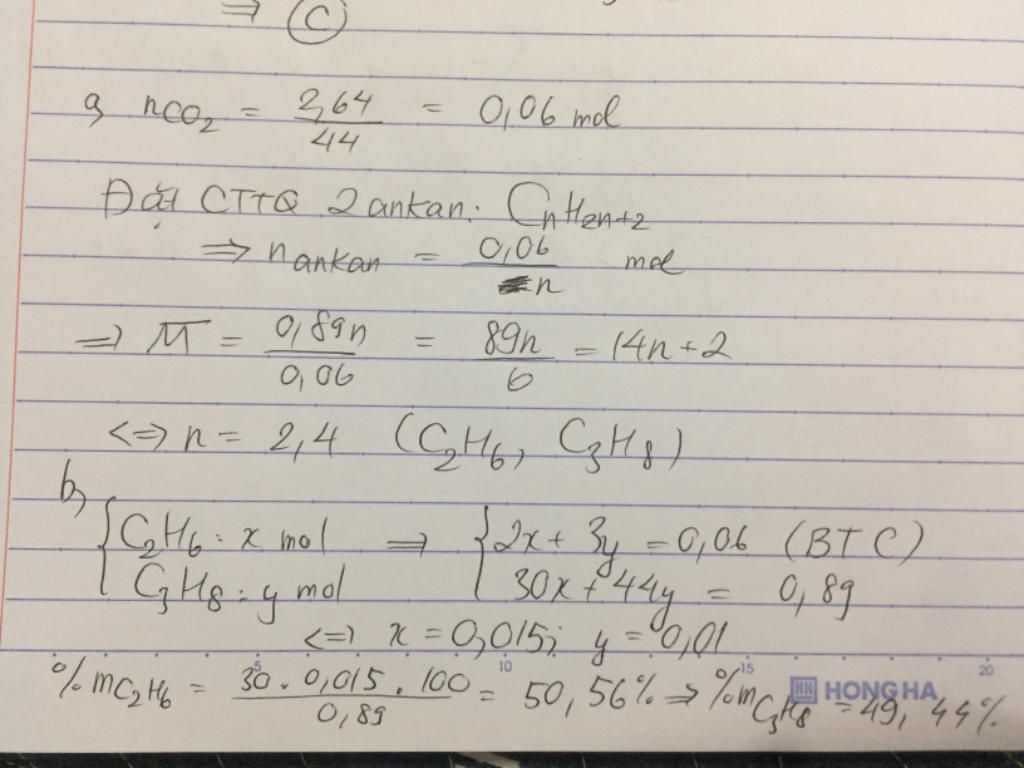 ⇒ C
a, nCO2 = 2,64/44 = 0,06 mol
Đặt CTTQ 2 ankan: CnH2n+2
⇒ n ankan = 0,06/n mol
⇒ M̅ = 0,89n/0,06 = 89n/6 = 14n+2
<=> n = 2,4 (C2H6, C3H8)
b,
{C2H6: x mol ⇒ {2x + 3y = 0,06 (BTC)
C3H8: y mol 30x + 44y = 0,89
<=> x = 0,015; y = 0,01
5 10 15 20
%mC2H6 = 30.0,015.100/0,89 = 50,56% ⇒ %mC3H8 = 49,44%
HH HONG HA